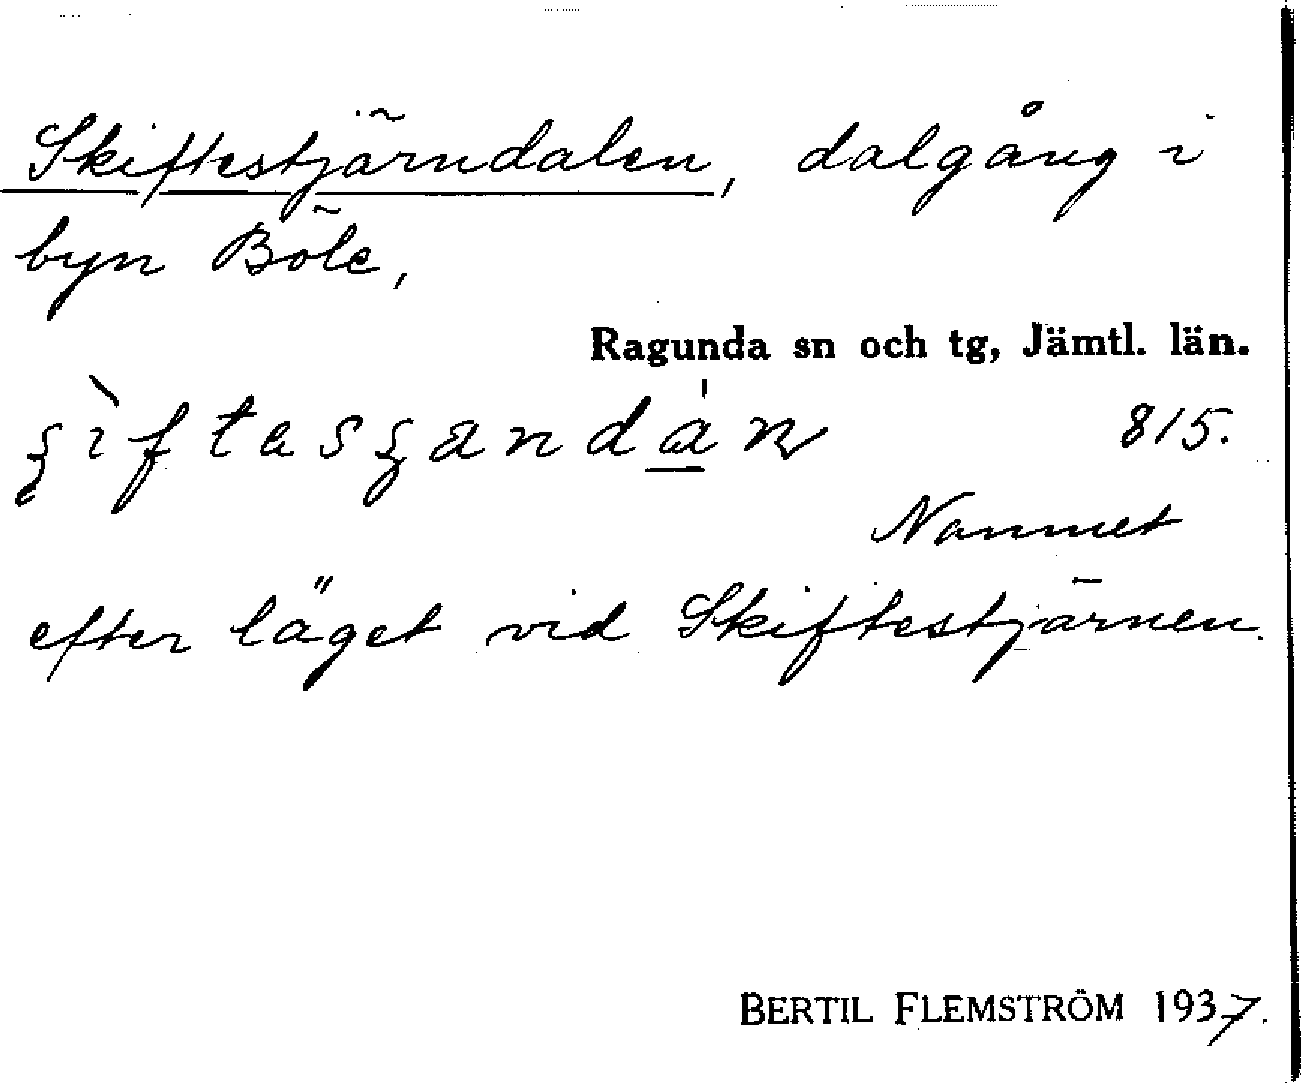 Skiftestjärndalen, dalgång i
byn Böle,
Ragunda sn och tg, Jämtl. län.
815.
Namnet
efter läget vid Skiftestjärnen.
BERTIL FLEMSTRÖM 1937.